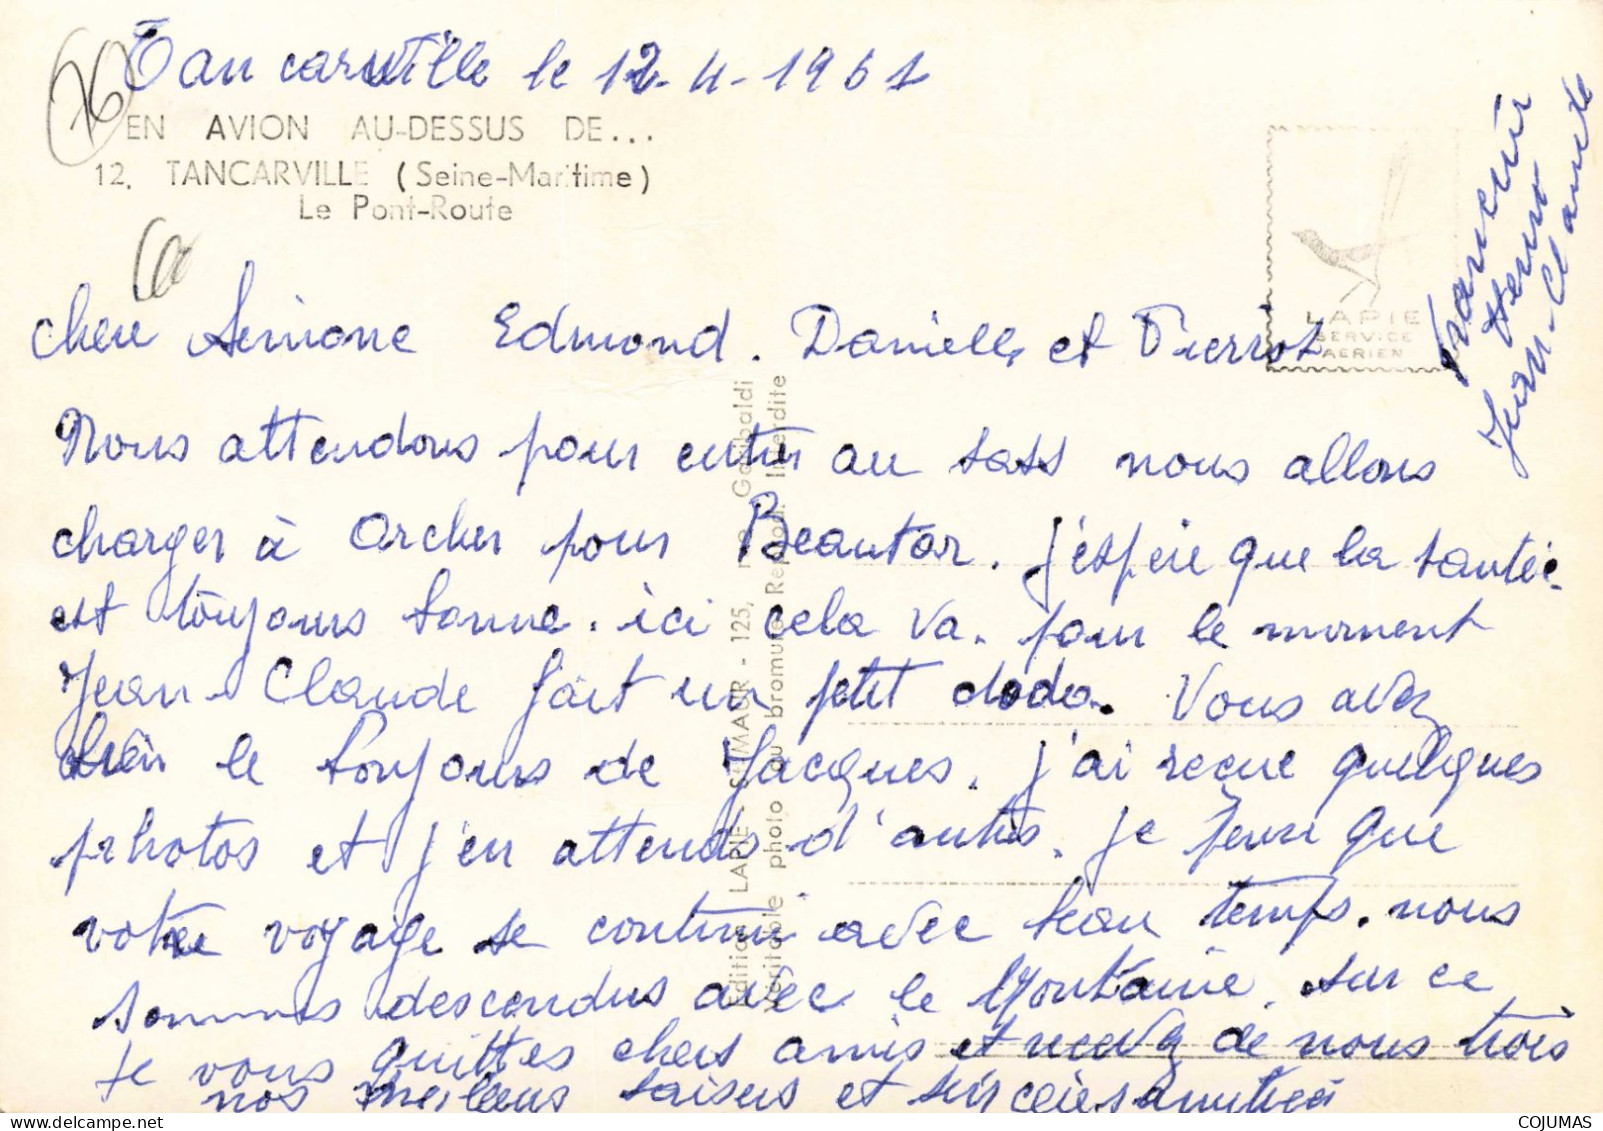 Tancarville le 12-4-1961
76
EN AVION AU-DESSUS DE...
12. TANCARVILLE (Seine-Maritime)
Le Pont-Route
LAPIE
SERVICE
AERIEN
Jean-Claude
chere Simone Edmond. Danielle et Pierrot
Nous attendons pour entrer au sass nous allons
charger à Orcher pour Beautor. j'espère que la santée
est toujours bonne. ici cela va. pour le moment
Jean-Claude fait un petit dodo. Vous avez
bien le bonjours de Jacques. j'ai recue quelques
photos et j'en attends d'autres. je pense que
votre voyage se continu avec beau temps. nous
sommes descendus avec le . sur ce
je vous quittes chers amis et recevez de nous trois
nos meilleurs baisers et sincères amitiées
Edition LAPIE - ST-MAUR - 125, r. Garibaldi
Véritable photo au bromure Reprod. Interdite
COJUMAS